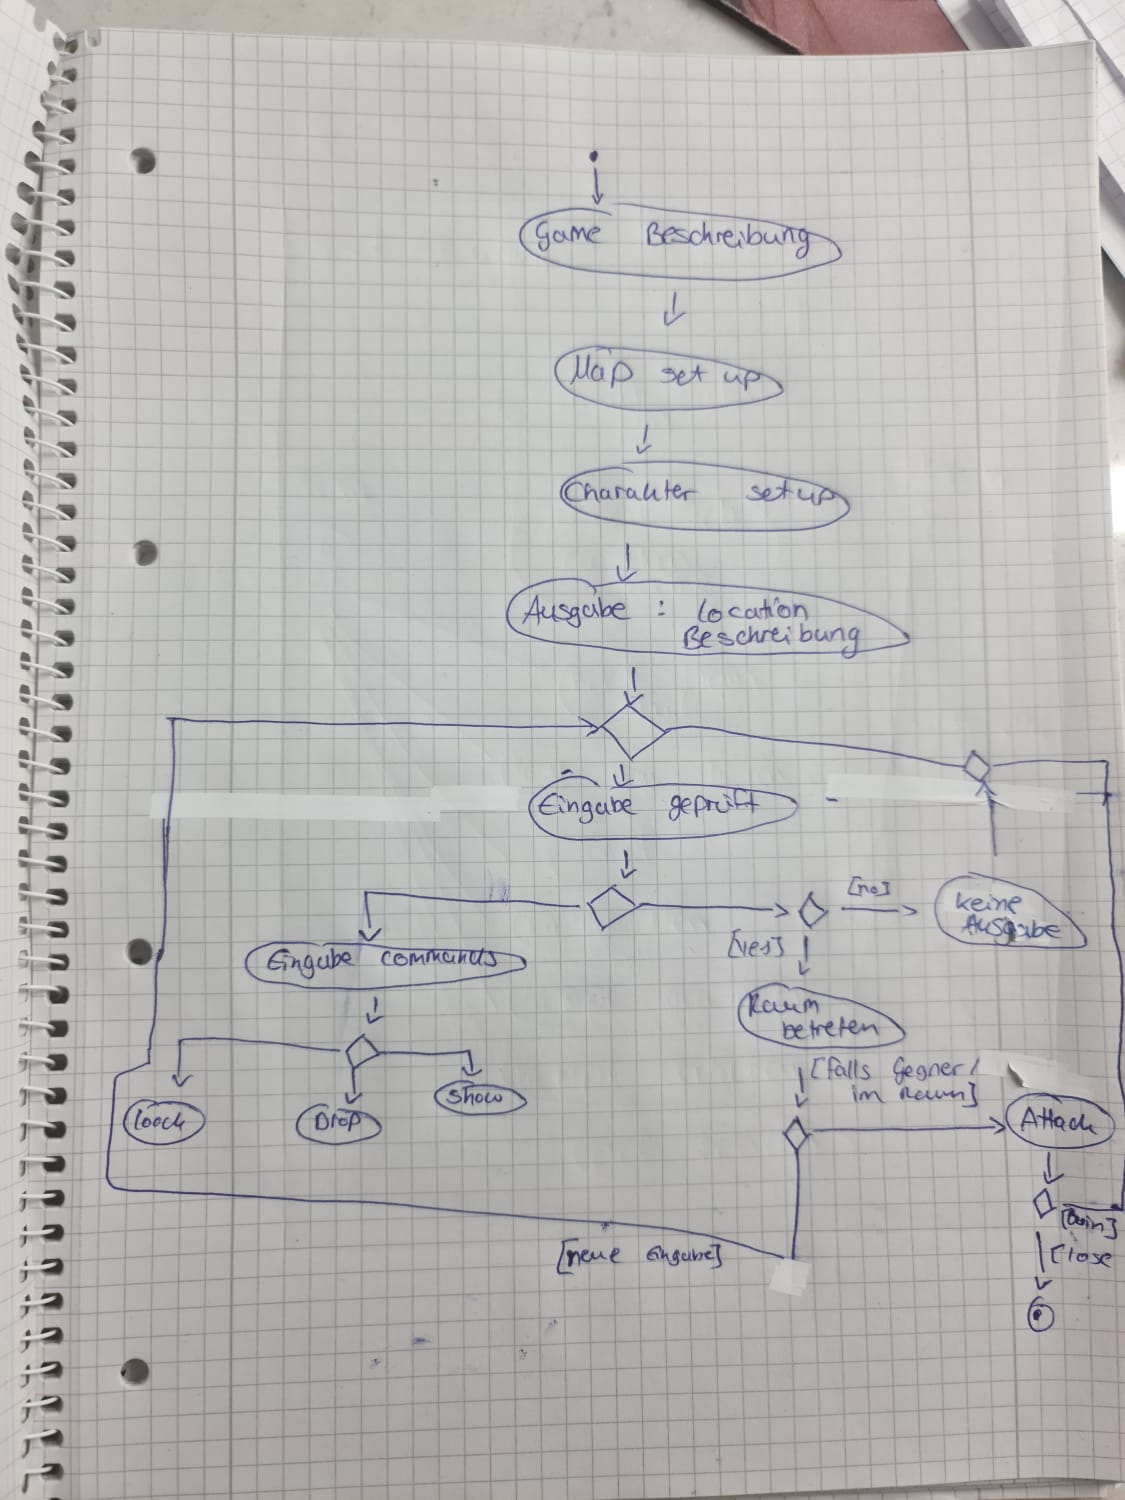 Game Beschreibung
Map set up
Charakter setup
Ausgabe : Location
Beschreibung
Eingabe geprüft
[no]
keine
Ausgabe
[yes]
Eingabe commands
Raum
betreten
[falls Gegner
im Raum]
Show
Drop
Attack
[win]
[neue Eingabe]
[lose